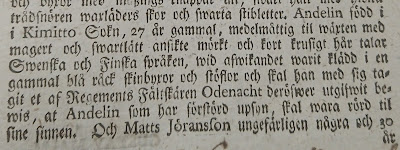 trädsnören warläders skor och swarta stibletter. Andelin född i
i Kimitto Sokn, 27 år gammal, medelmåttig til wäxten med
magert och swartlätt ansikte mörkt och kort krusigt hår talar
Swenska och Finska språken, wid afwikandet warit klädd i en
gammal blå råck skinbyxor och stöflor och skal han med sig ta-
git et af Regements Fältskären Odenacht deröfwer utgifwit be-
wis, at Andelin som har förstörd upsyn, skal wara rörd til
sine sinnen. Och Matts Jöransson ungefärligen några och 30
år